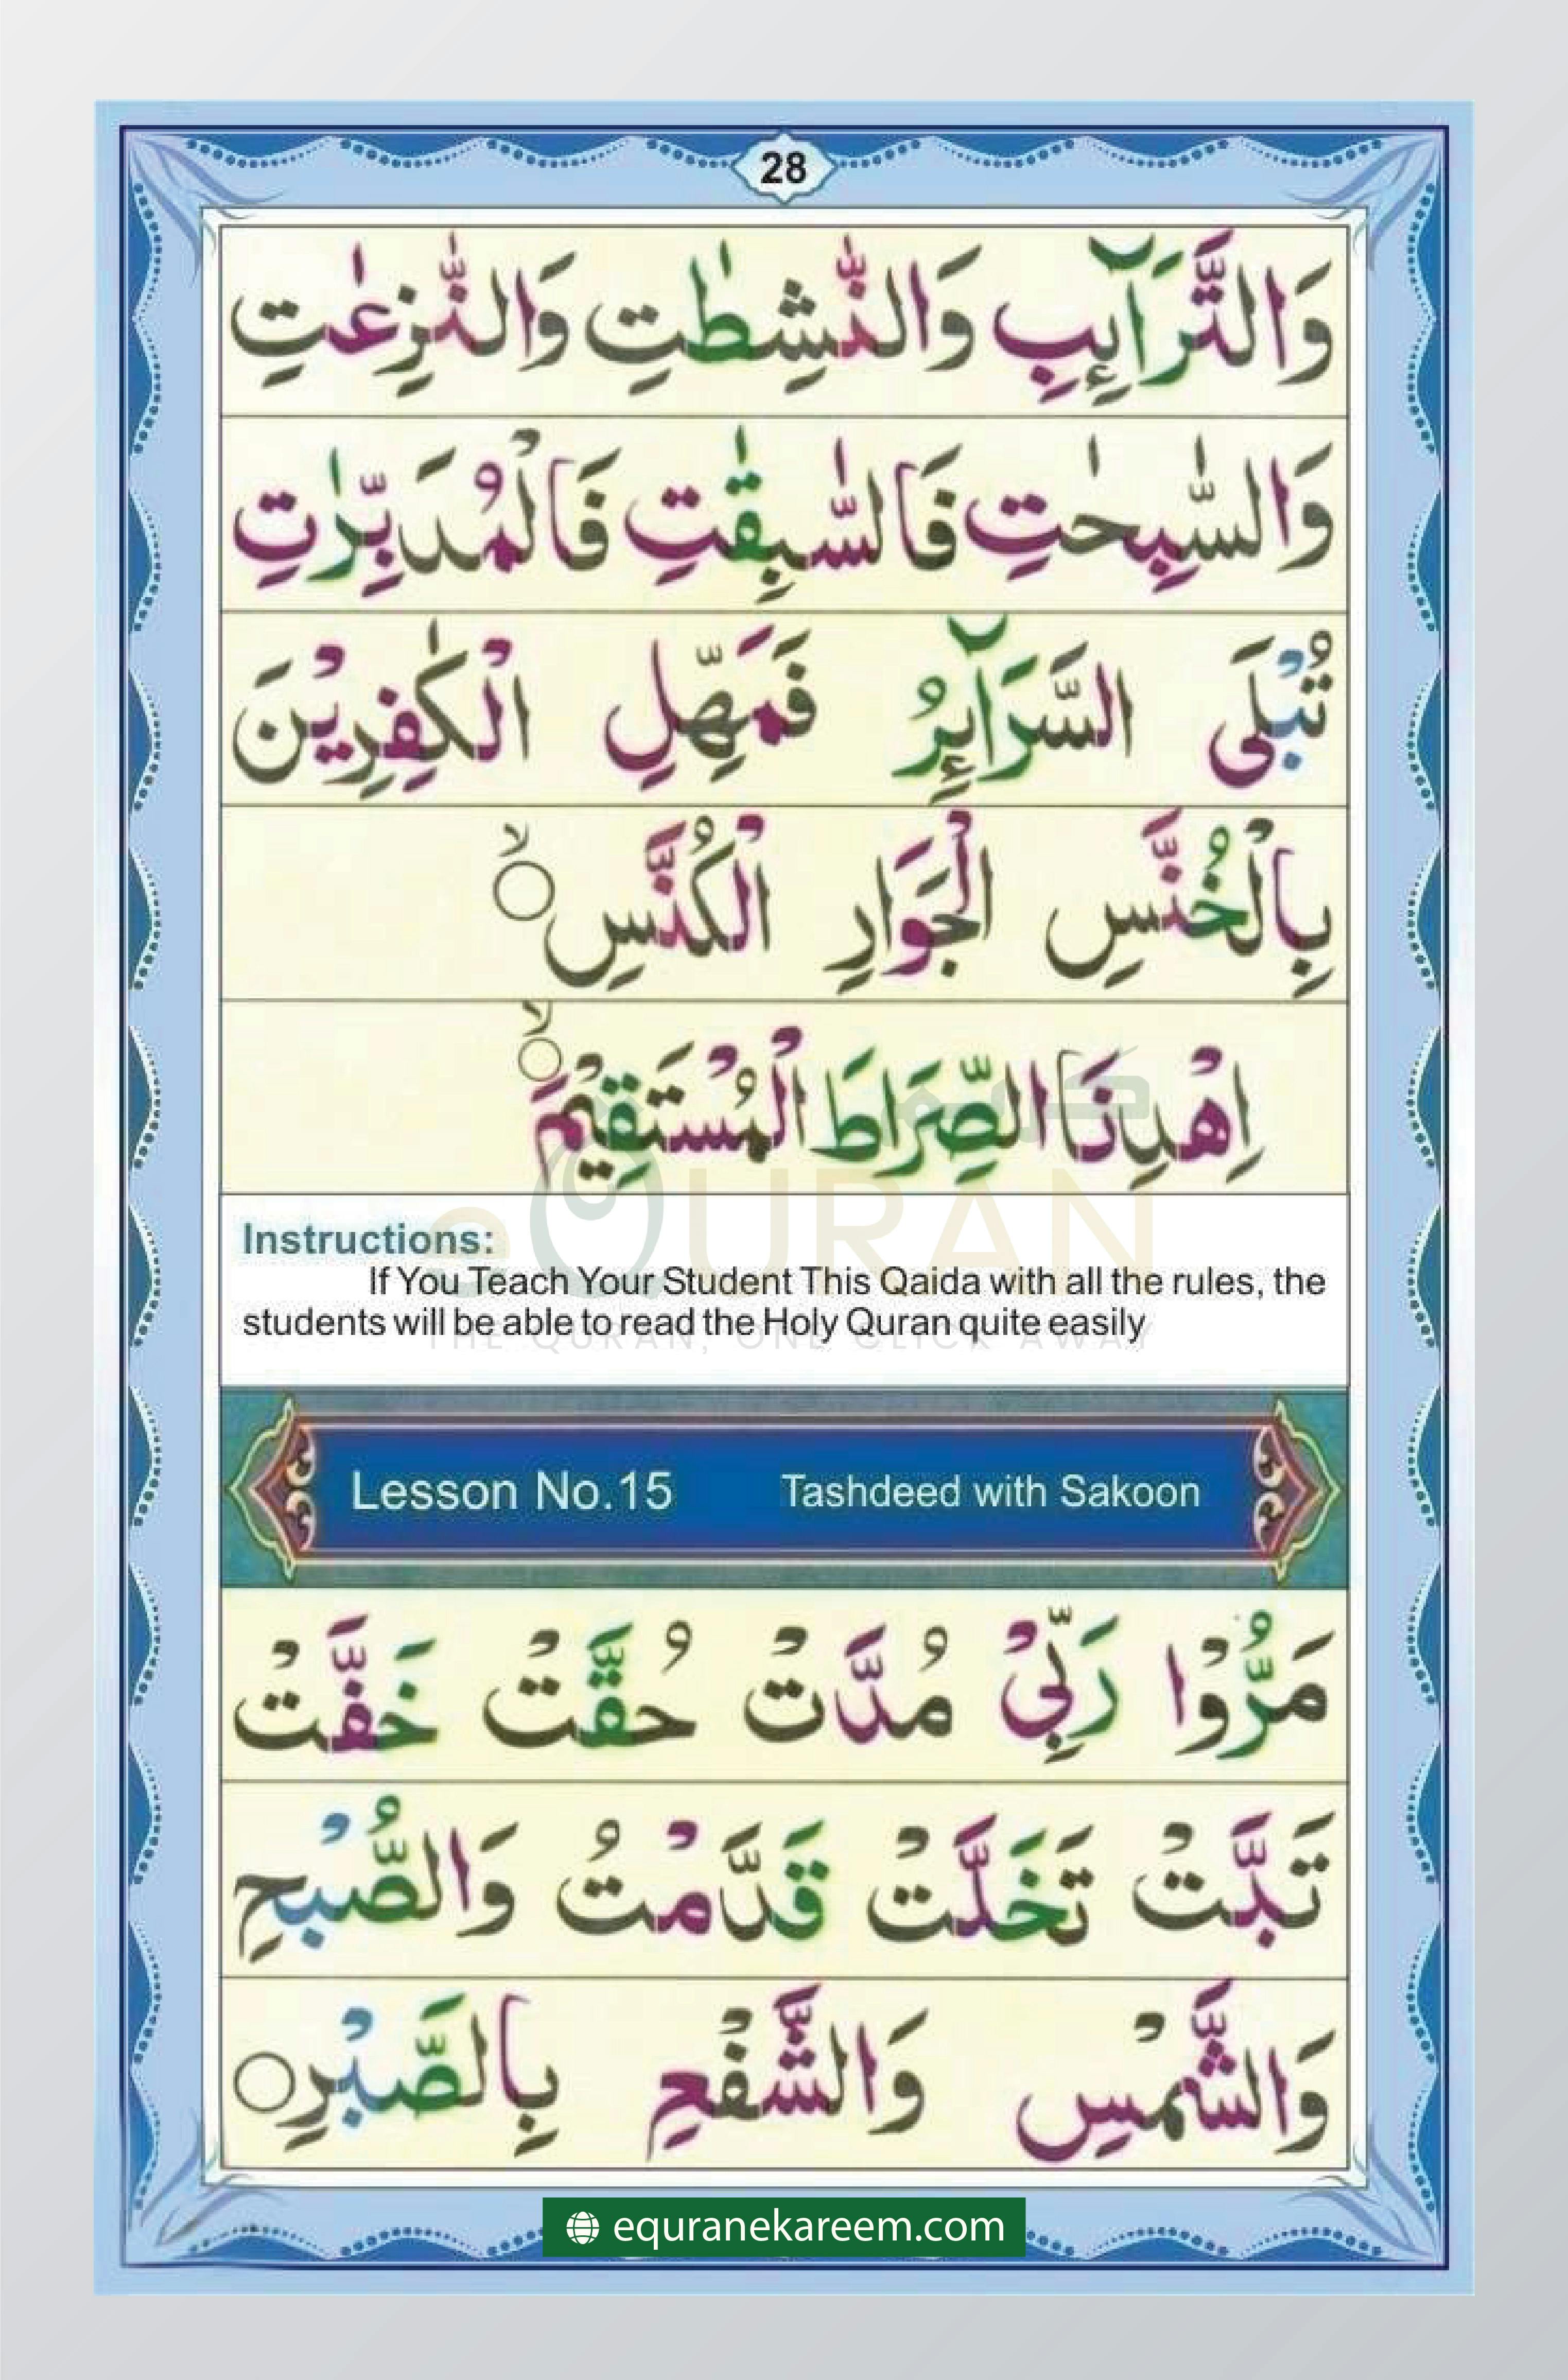 28
وَالتَّرَآئِبِ وَالنّٰشِطٰتِ وَالنّٰزِعٰتِ
وَالسّٰبِحٰتِ فَالسّٰبِقٰتِ فَالْمُدَبِّرٰتِ
تُبْلَى السَّرَآئِرُ فَمَهِّلِ الْكٰفِرِيْنَ
بِالْخُنَّسِ الْجَوَارِ الْكُنَّسِ ۙ
اِهْدِنَا الصِّرَاطَ الْمُسْتَقِيْمَ ۙ
eQURAN
THE QURAN, ONE CLICK AWAY
Instructions:
If You Teach Your Student This Qaida with all the rules, the
students will be able to read the Holy Quran quite easily
Lesson No.15 Tashdeed with Sakoon
مَرُّوْا رَبِّيْ مُدَّتْ حُقَّتْ خَفَّتْ
تَبَّتْ تَخَلَّتْ قَدَّمْتُ وَالصُّبْحِ
وَالشَّمْسِ وَالشَّفْعِ بِالصَّبْرِ
equranekareem.com